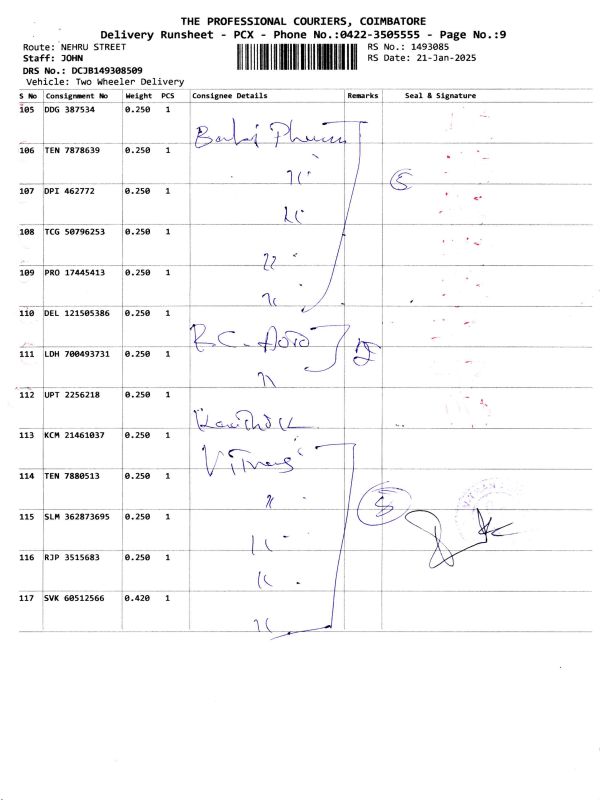 THE PROFESSIONAL COURIERS, COIMBATORE
Delivery Runsheet - PCX - Phone No.:0422-3505555 - Page No.:9
Route: NEHRU STREET
RS No.: 1493085
Staff: JOHN
RS Date: 21-Jan-2025
DRS No.: DCJB149308509
Vehicle: Two Wheeler Delivery
S No Consignment No Weight PCS Consignee Details Remarks Seal & Signature
105 DDG 387534 0.250 1
106 TEN 7878639 0.250 1
107 DPI 462772 0.250 1
5
108 TCG 50796253 0.250 1
109 PRO 17445413 0.250 1
110 DEL 121505386 0.250 1
111 LDH 700493731 0.250 1
112 UPT 2256218 0.250 1
113 KCM 21461037 0.250 1
114 TEN 7880513 0.250 1
5
115 SLM 362873695 0.250 1
116 RJP 3515683 0.250 1
117 SVK 60512566 0.420 1